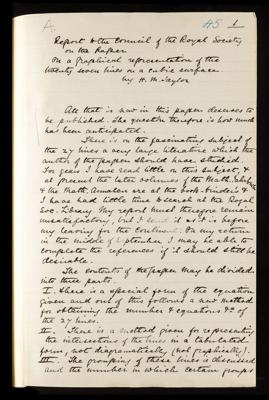 A.
45 1
Report to the Council of the Royal Society
on the Paper
On a graphical representation of the
twenty seven lines on a cubic surface
by H. M. Taylor
All that is new in this paper deserves to
be published. The question therefore is how much
has been anticipated.
There is on the fascinating subject of
the 27 lines a very large literature which the
author of the paper should have studied.
For years I have read little on this subject, &
at present the later volumes of the Math.
& the Math. Annalen are at the book-binder's &
I have had little time to search at the Royal
Soc. Library. My report must therefore remain
unsatisfactory, but I send it as it is before
my leaving for the Continent. On my return
in the middle of September I may be able to
complete the references if it should still be
desirable.
The contents of the paper may be divided
into three parts.
I. There is a special form of the equation
given and out of this follows a new method
for obtaining the number & equations &c of
the 27 lines.
II. There is a method given for representing
the intersections of the lines in a tabulated
form, not diagramatically (not graphically).
III. The grouping of these lines is discussed
and the number in which certain groups